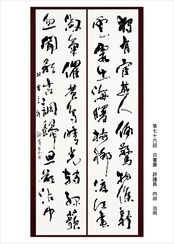 独有宦遊人偏驚物候新
雲霞出海曙梅柳渡江春
淑氣催黄鳥晴光轉綠蘋
忽聞歌古調歸思欲沾巾
第七十六回 日書展 評議員 内田